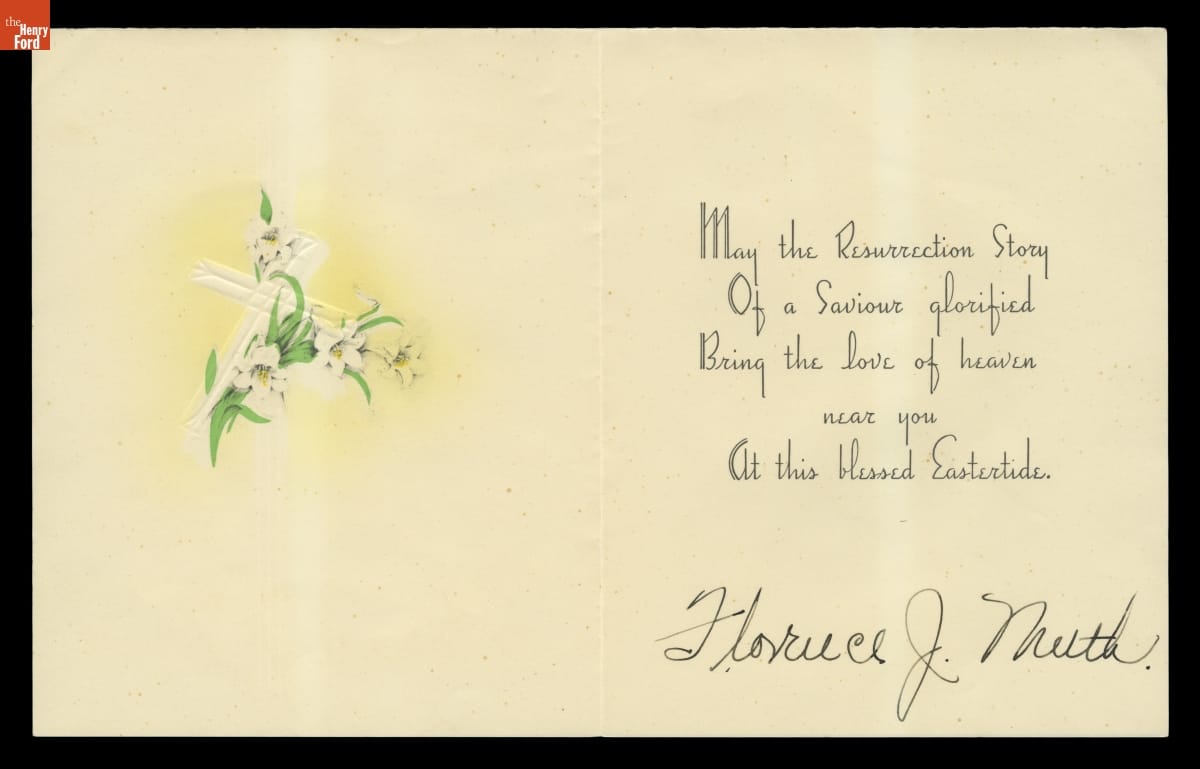 the
Henry
Ford
May the Resurrection Story
Of a Saviour glorified
Bring the love of heaven
near you
At this blessed Eastertide.
Florence J. Muth.